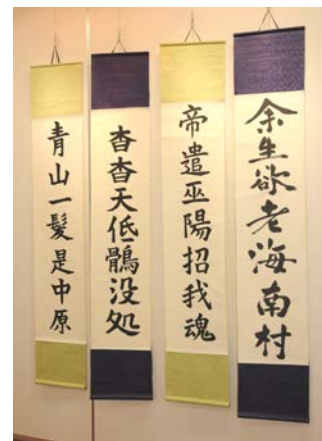 余生欲老海南村
帝遣巫陽招我魂
杳杳天低鶻没処
青山一髪是中原